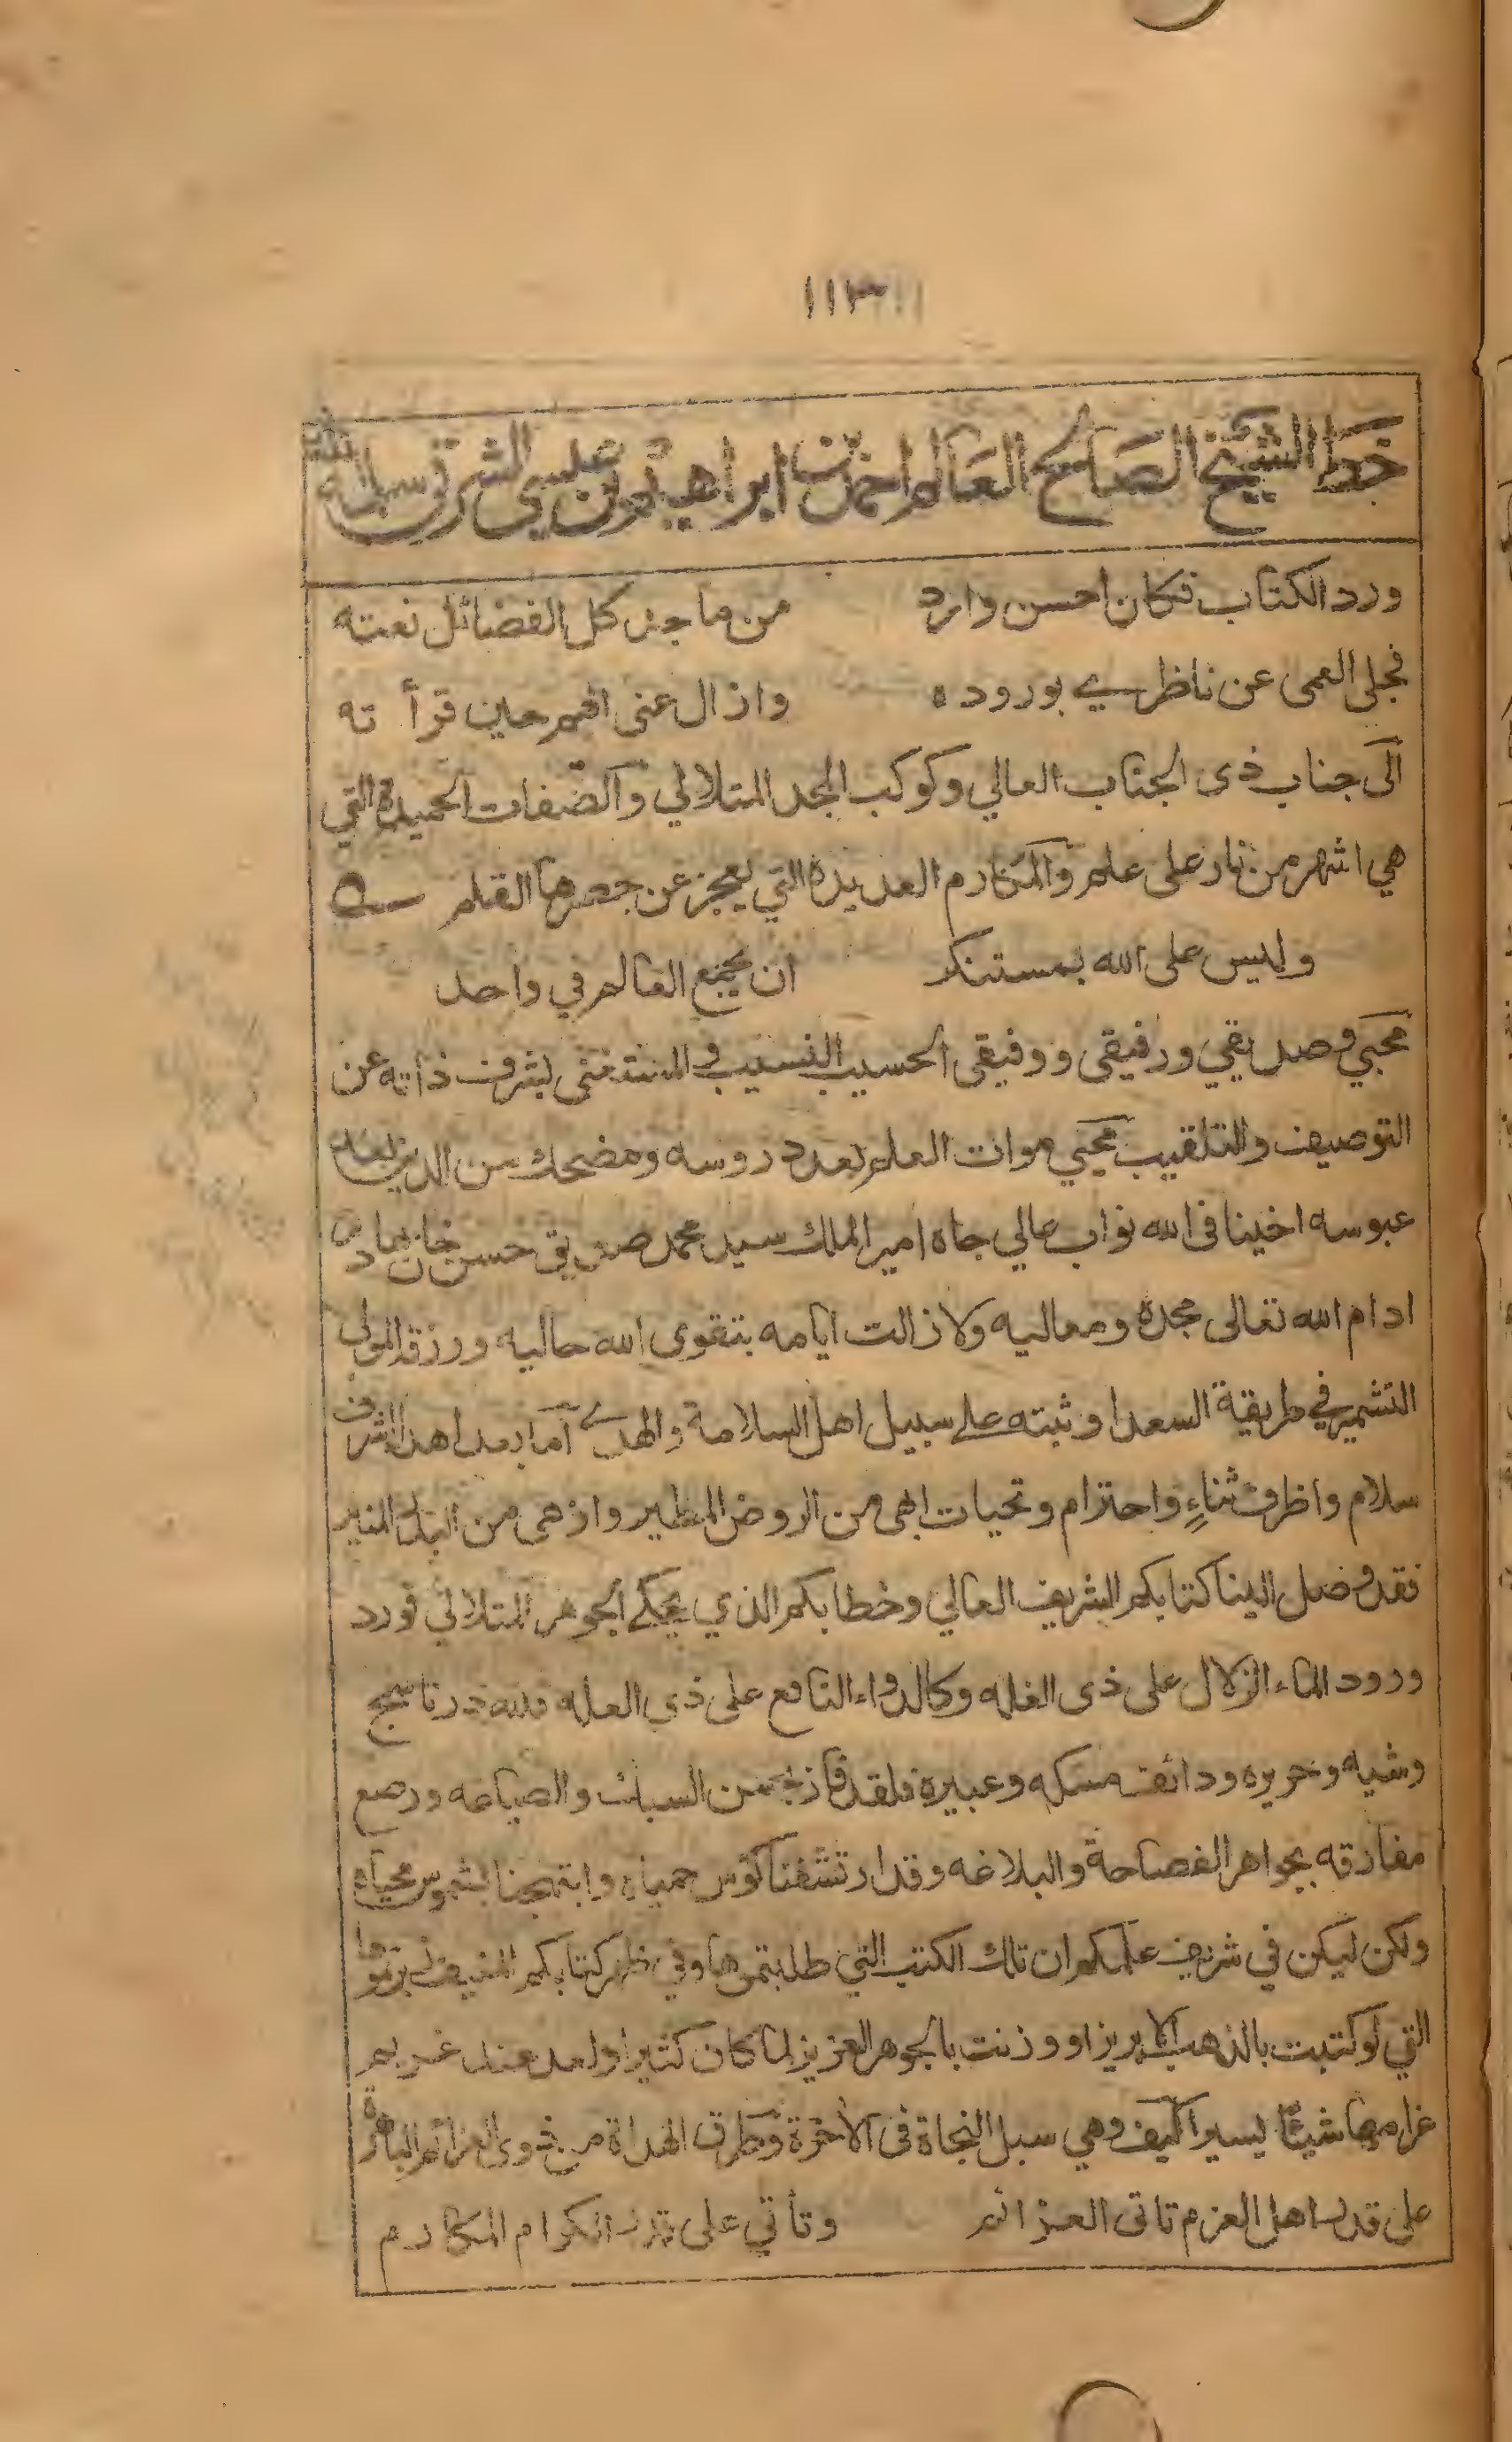 ١١٣
خط الشيخ الصالح العالم احمد بن ابراهيم بن عيسى الشرقي سلمه الله
ورد الكتاب فكان احسن وارد من ماجد كل الفضائل نعته
فجلى العمى عن ناظرے بوروده وازال عنى الهم حين قرأ ته
الى جناب ذى الجناب العالي وكوكب المجد المتلالي والصفات الحميدة التي
هي اشهر من نار على علم والمكارم العديدة التي يعجز عن حصرها القلم
وليس على الله بمستنكر ان يجمع العالم في واحد
محبي وصديقي ورفيقى ووفيقى الحسيب النسيب والمستغنى بشرف ذاته عن
التوصيف والتلقيب محيي موات العلم بعد دروسه ومضحك سن الدين بعد
عبوسه اخينا فى الله نواب عالي جاه امير الملك سيد محمد صديق حسن خان بهادر
ادام الله تعالى مجده ومعاليه ولا زالت ايامه بتقوى الله حاليه ورزقه المولى
التشمير في طريقة السعدا وثبته على سبيل اهل السلامة والهدے اما بعد اهدا اشرف
سلام واظرف ثناءٍ واحترام وتحيات ابهى من الروض المطير وازهى من البدر المنير
فقد وصل الينا كتابكم الشريف العالي وخطابكم الذي يحكے الجوهر المتلالي فورد
ورود الماء الزلال على ذى الغله وكالدواء النافع على ذي العله فلله در ناسج
وشيه وحريره ودائف مسكه وعبيره فلقد فاز بحسن السبك والصياغه ورصع
مفارقه بجواهر الفصاحة والبلاغه وقد ارتشفنا كؤس حمياه وابتهجنا بشموس محياه
ولكن ليكن في شريف علمكم ان تلك الكتب التي طلبتموها وفي ظهر كتابكم المنيف
التي لو كتبت بالذهب الابريز او وزنت بالجوهر العزيز لما كان كثيرا ولعد عند غريم
غرامها شيئا يسيرا كيف وهي سبل النجاة فى الآخرة وطرق الهداة من ذوى العزائم
على قدر اهل العزم تاتى العزائم وتأتي على قدر الكرام المكارم